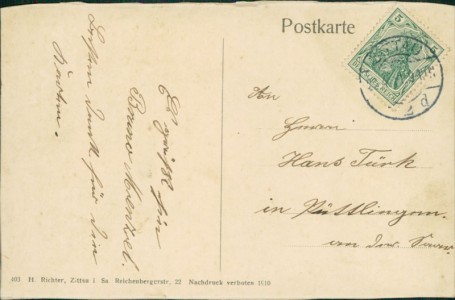 Postkarte
5
An
Herrn
Hans Türk
in Püttlingen.
an der Saar.
Besten Dank für die
Karten.
Es grüßt
Bruno Menzel.
403 H. Richter, Zittau i Sa. Reichenbergerstr. 22 Nachdruck verboten 1910